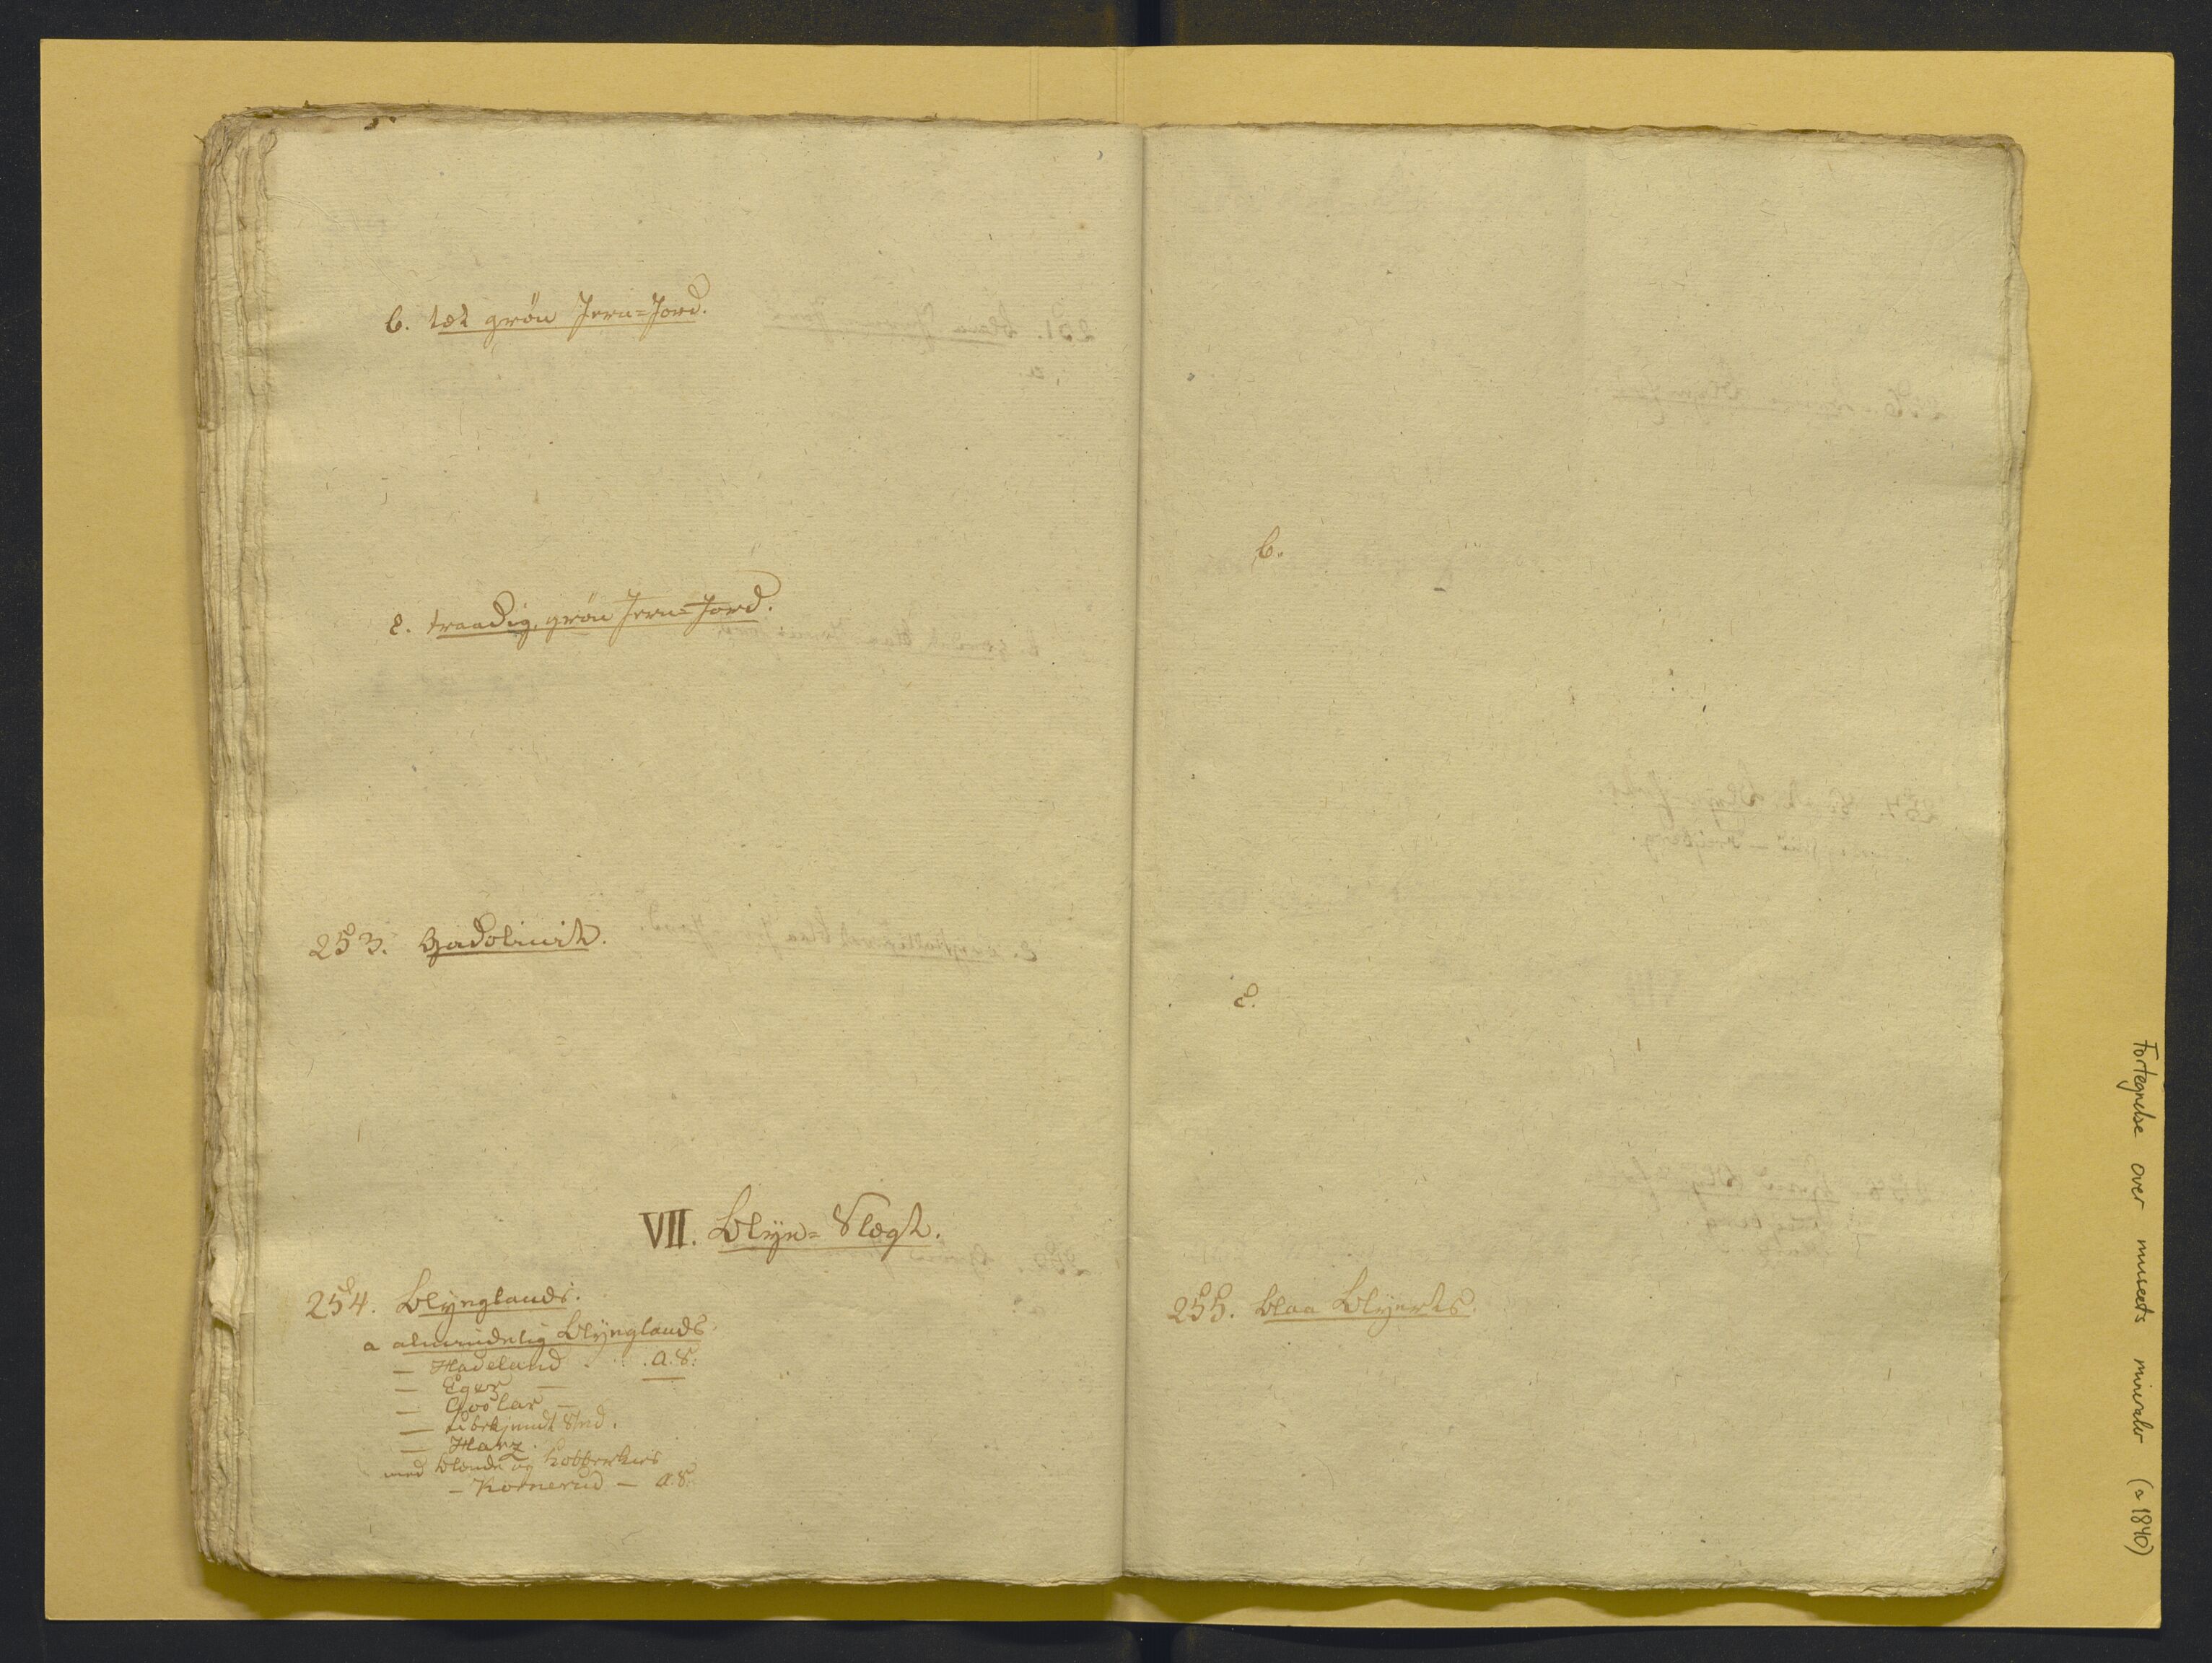 b. tæt grön Jern=Jord.
c. traadig, grön Jern=Jord.
253. Gadolinit.
VII. Blÿe=Slægt.
254. Blÿeglands.
a almindelig Blÿeglands.
— Hadeland . . . . a.S.
— Eger —
— Goslar —
— ubekjendt Sted.
— Harz.
med Blende og Kobberkies
— Kornerud — a.S.
b.
c.
255. blaa Blÿerts.
Fortegnelse over museets mineraler (ca 1840)